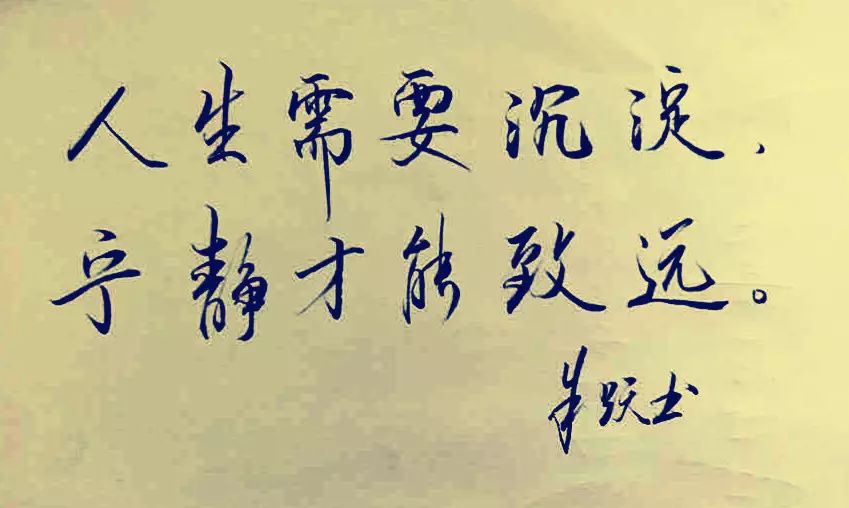 人生需要沉淀,
宁静才能致远。
朱跃书